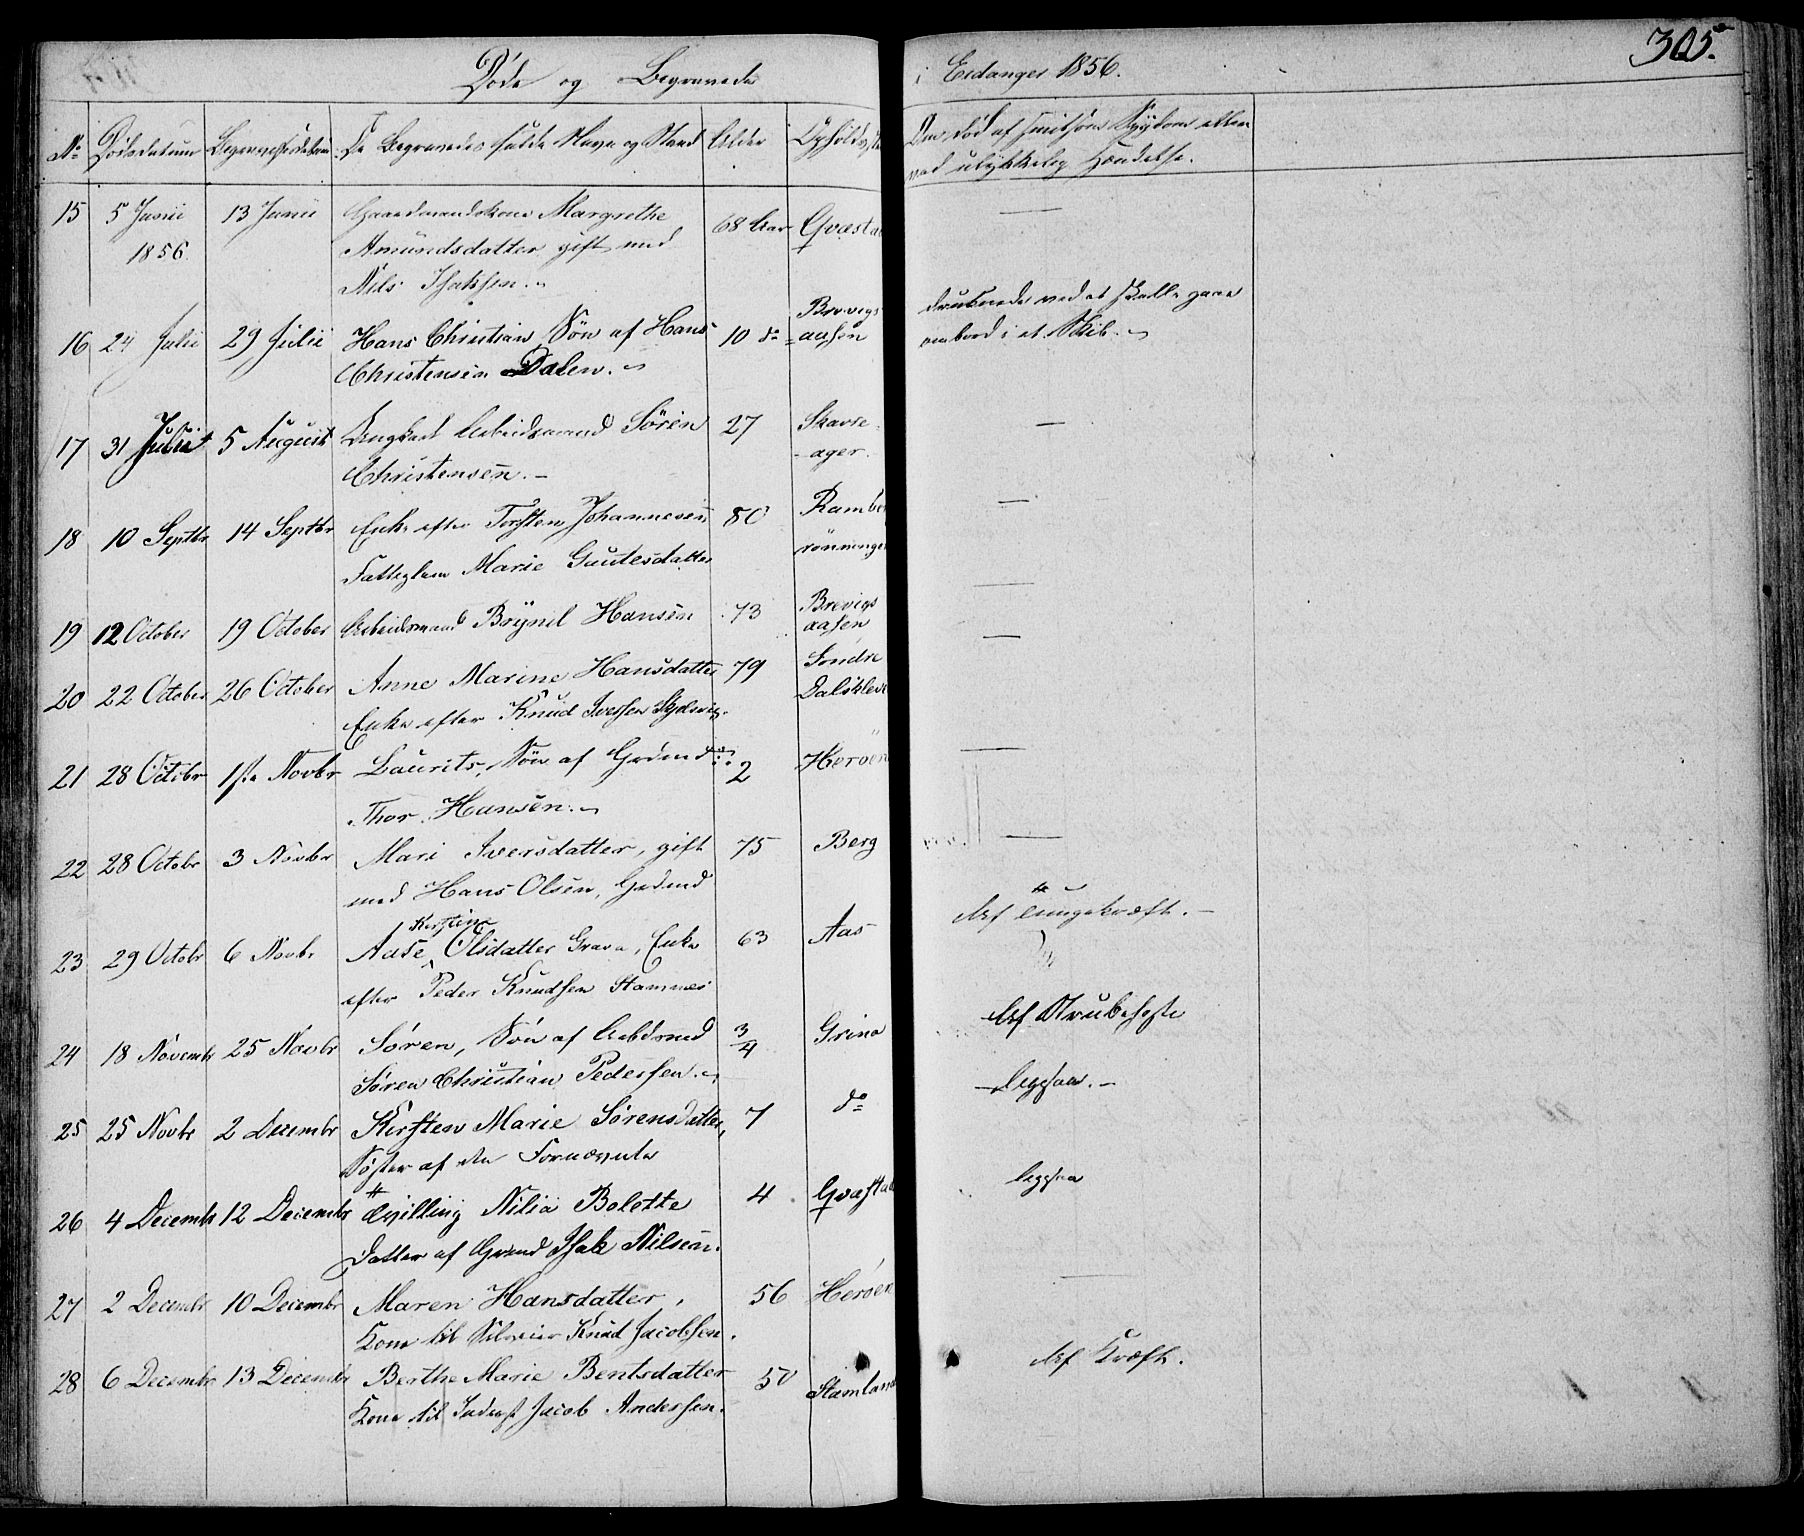 Døde og Begravede i Eidanger 1856. 305.
No Dødsdatum Begravelsesdatum De Begravedes fulde Navn og Stand Alder Opholdsste Om død af smitsom Sygdom eller
ved ulykkelig Hændelse.
15 5 Junii 13 Junii Gaardmandskone Margrethe 68 Aar Qvæsta —
1856 Amundsdatter gift med
Nils Isaksen.
16 24 Julii 29 Julii Hans Christian, Søn af Hans 10 do Brevigs- druknede ved at skulle gaae
Christensen Dalen. aasen ombord i et Skib.
17 31 Julii 5 August Ungkarl Arbeidsmand Søren 27 Skavre- —
Christensen. — ager.
18 10 Septbr 14 Septbr Enke efter Torsten Johannesen 80 Rambe —
Fattiglem Marie Gautesdatter rönninge
19 12 October 19 October Arbeidsmand Brynil Hansen 73 Brevigs —
aasen
20 22 October 26 October Anne Marine Hansdatter 79 Söndre —
Enke efter Knud Iversen Dalskleve
21 28 Octobr 1ste Novbr Laurits, Søn af Grdmd 2 Heröen —
Thor Hansen.
22 28 Octobr 3 Novbr Mari Iversdatter, gift 75 Berg —
med Hans Olsen, Grdmd
23 29 Octobr 6 Novbr Aase Kirstine Olsdatter Grava, Enke 63 Aas Af Lungekræft. —
efter Peder Knudsen Stamnes
24 18 Novembr 25 Novbr Søren, Søn af Arbdsmd 3/4 Grina Af Strubehoste
Søren Christian Pedersen.
25 25 Novbr 2 Decembr Kirsten Marie Sørensdatter, 7 do ligesaa. —
Søster af den Fornævnte
26 4 Decembr 12 Decembr Tvilling Nilia Bolette 4 Qvæsta ligesaa
Datter af Grmd Isak Nilsen.
27 2 Decembr 10 Decembr Maren Hansdatter, 56 Heröen —
Kone til Knud Jacobsen.
28 6 Decembr 13 Decembr Berthe Marie Bentsdatter 50 Stamland Af Kræft.
Kone til Jacob Andersen.